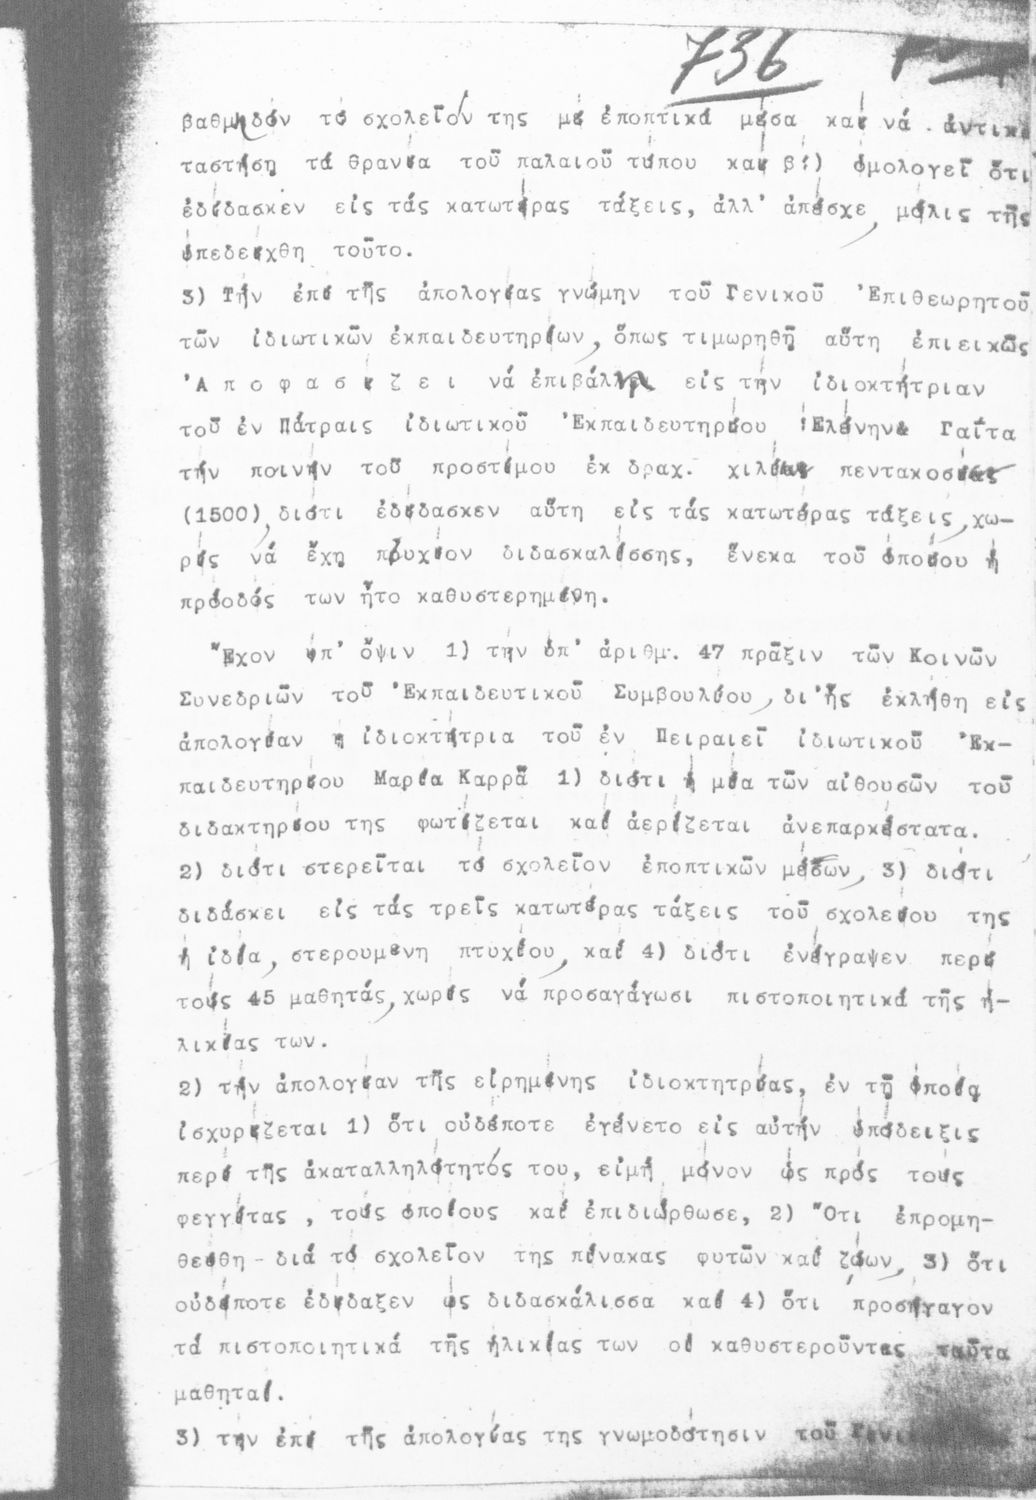 736
βαθμηδόν τό σχολεῖόν της μέ ἐποπτικά μέσα καί νά ἀντικα
ταστήσῃ τά θρανία τοῦ παλαιοῦ τύπου καί β!) ὁμολογεῖ ὅτι
ἐδίδασκεν εἰς τάς κατωτέρας τάξεις, ἀλλ' ἀπέσχε, μόλις τῆς
ὑπεδείχθη τοῦτο.
3) Τήν ἐπί τῆς ἀπολογίας γνώμην τοῦ Γενικοῦ Ἐπιθεωρητοῦ
τῶν ἰδιωτικῶν ἐκπαιδευτηρίων, ὅπως τιμωρηθῇ αὕτη ἐπιεικῶς
Ἀ π ο φ α σ ί ζ ε ι νά ἐπιβάλλῃ εἰς τήν ἰδιοκτήτριαν
τοῦ ἐν Πάτραις ἰδιωτικοῦ Ἐκπαιδευτηρίου Ἑλένην Γαΐτα
τήν ποινήν τοῦ προστίμου ἐκ δραχ. χιλίων πεντακοσίας
(1500), διότι ἐδίδασκεν αὕτη εἰς τάς κατωτέρας τάξεις, χω-
ρίς νά ἔχῃ πτυχίον διδασκαλίσσης, ἕνεκα τοῦ ὁποίου ἡ
πρόοδός των ἦτο καθυστερημένη.
Ἔχον ὑπ' ὄψιν 1) τήν ὑπ' ἀριθμ. 47 πρᾶξιν τῶν Κοινῶν
Συνεδριῶν τοῦ Ἐκπαιδευτικοῦ Συμβουλίου, δι'ἧς ἐκλήθη εἰς
ἀπολογίαν ἡ ἰδιοκτήτρια τοῦ ἐν Πειραιεῖ ἰδιωτικοῦ Ἐκ-
παιδευτηρίου Μαρία Καρρᾶ 1) διότι ἡ μία τῶν αἰθουσῶν τοῦ
διδακτηρίου της φωτίζεται καί ἀερίζεται ἀνεπαρκέστατα.
2) διότι στερεῖται τό σχολεῖον ἐποπτικῶν μέσων, 3) διότι
διδάσκει εἰς τάς τρεῖς κατωτέρας τάξεις τοῦ σχολείου της
ἡ ἰδία, στερουμένη πτυχίου, καί 4) διότι ἐνέγραψεν περί
τούς 45 μαθητάς, χωρίς νά προσαγάγωσι πιστοποιητικά τῆς ἡ-
λικίας των.
2) τήν ἀπολογίαν τῆς εἰρημένης ἰδιοκτητρίας, ἐν τῇ ὁποίᾳ
ἰσχυρίζεται 1) ὅτι οὐδέποτε ἐγένετο εἰς αὐτήν ὑπόδειξις
περί τῆς ἀκαταλληλότητός του, εἰμή μόνον ὡς πρός τούς
φεγγίτας , τούς ὁποίους καί ἐπιδιώρθωσε, 2) Ὅτι ἐπρομη-
θεύθη - διά τό σχολεῖον της πίνακας φυτῶν καί ζώων, 3) ὅτι
οὐδέποτε ἐδίδαξεν ὡς διδασκάλισσα καί 4) ὅτι προσήγαγον
τά πιστοποιητικά τῆς ἡλικίας των οἱ καθυστεροῦντες ταῦτα
μαθηταί.
3) τήν ἐπί τῆς ἀπολογίας της γνωμοδότησιν τοῦ